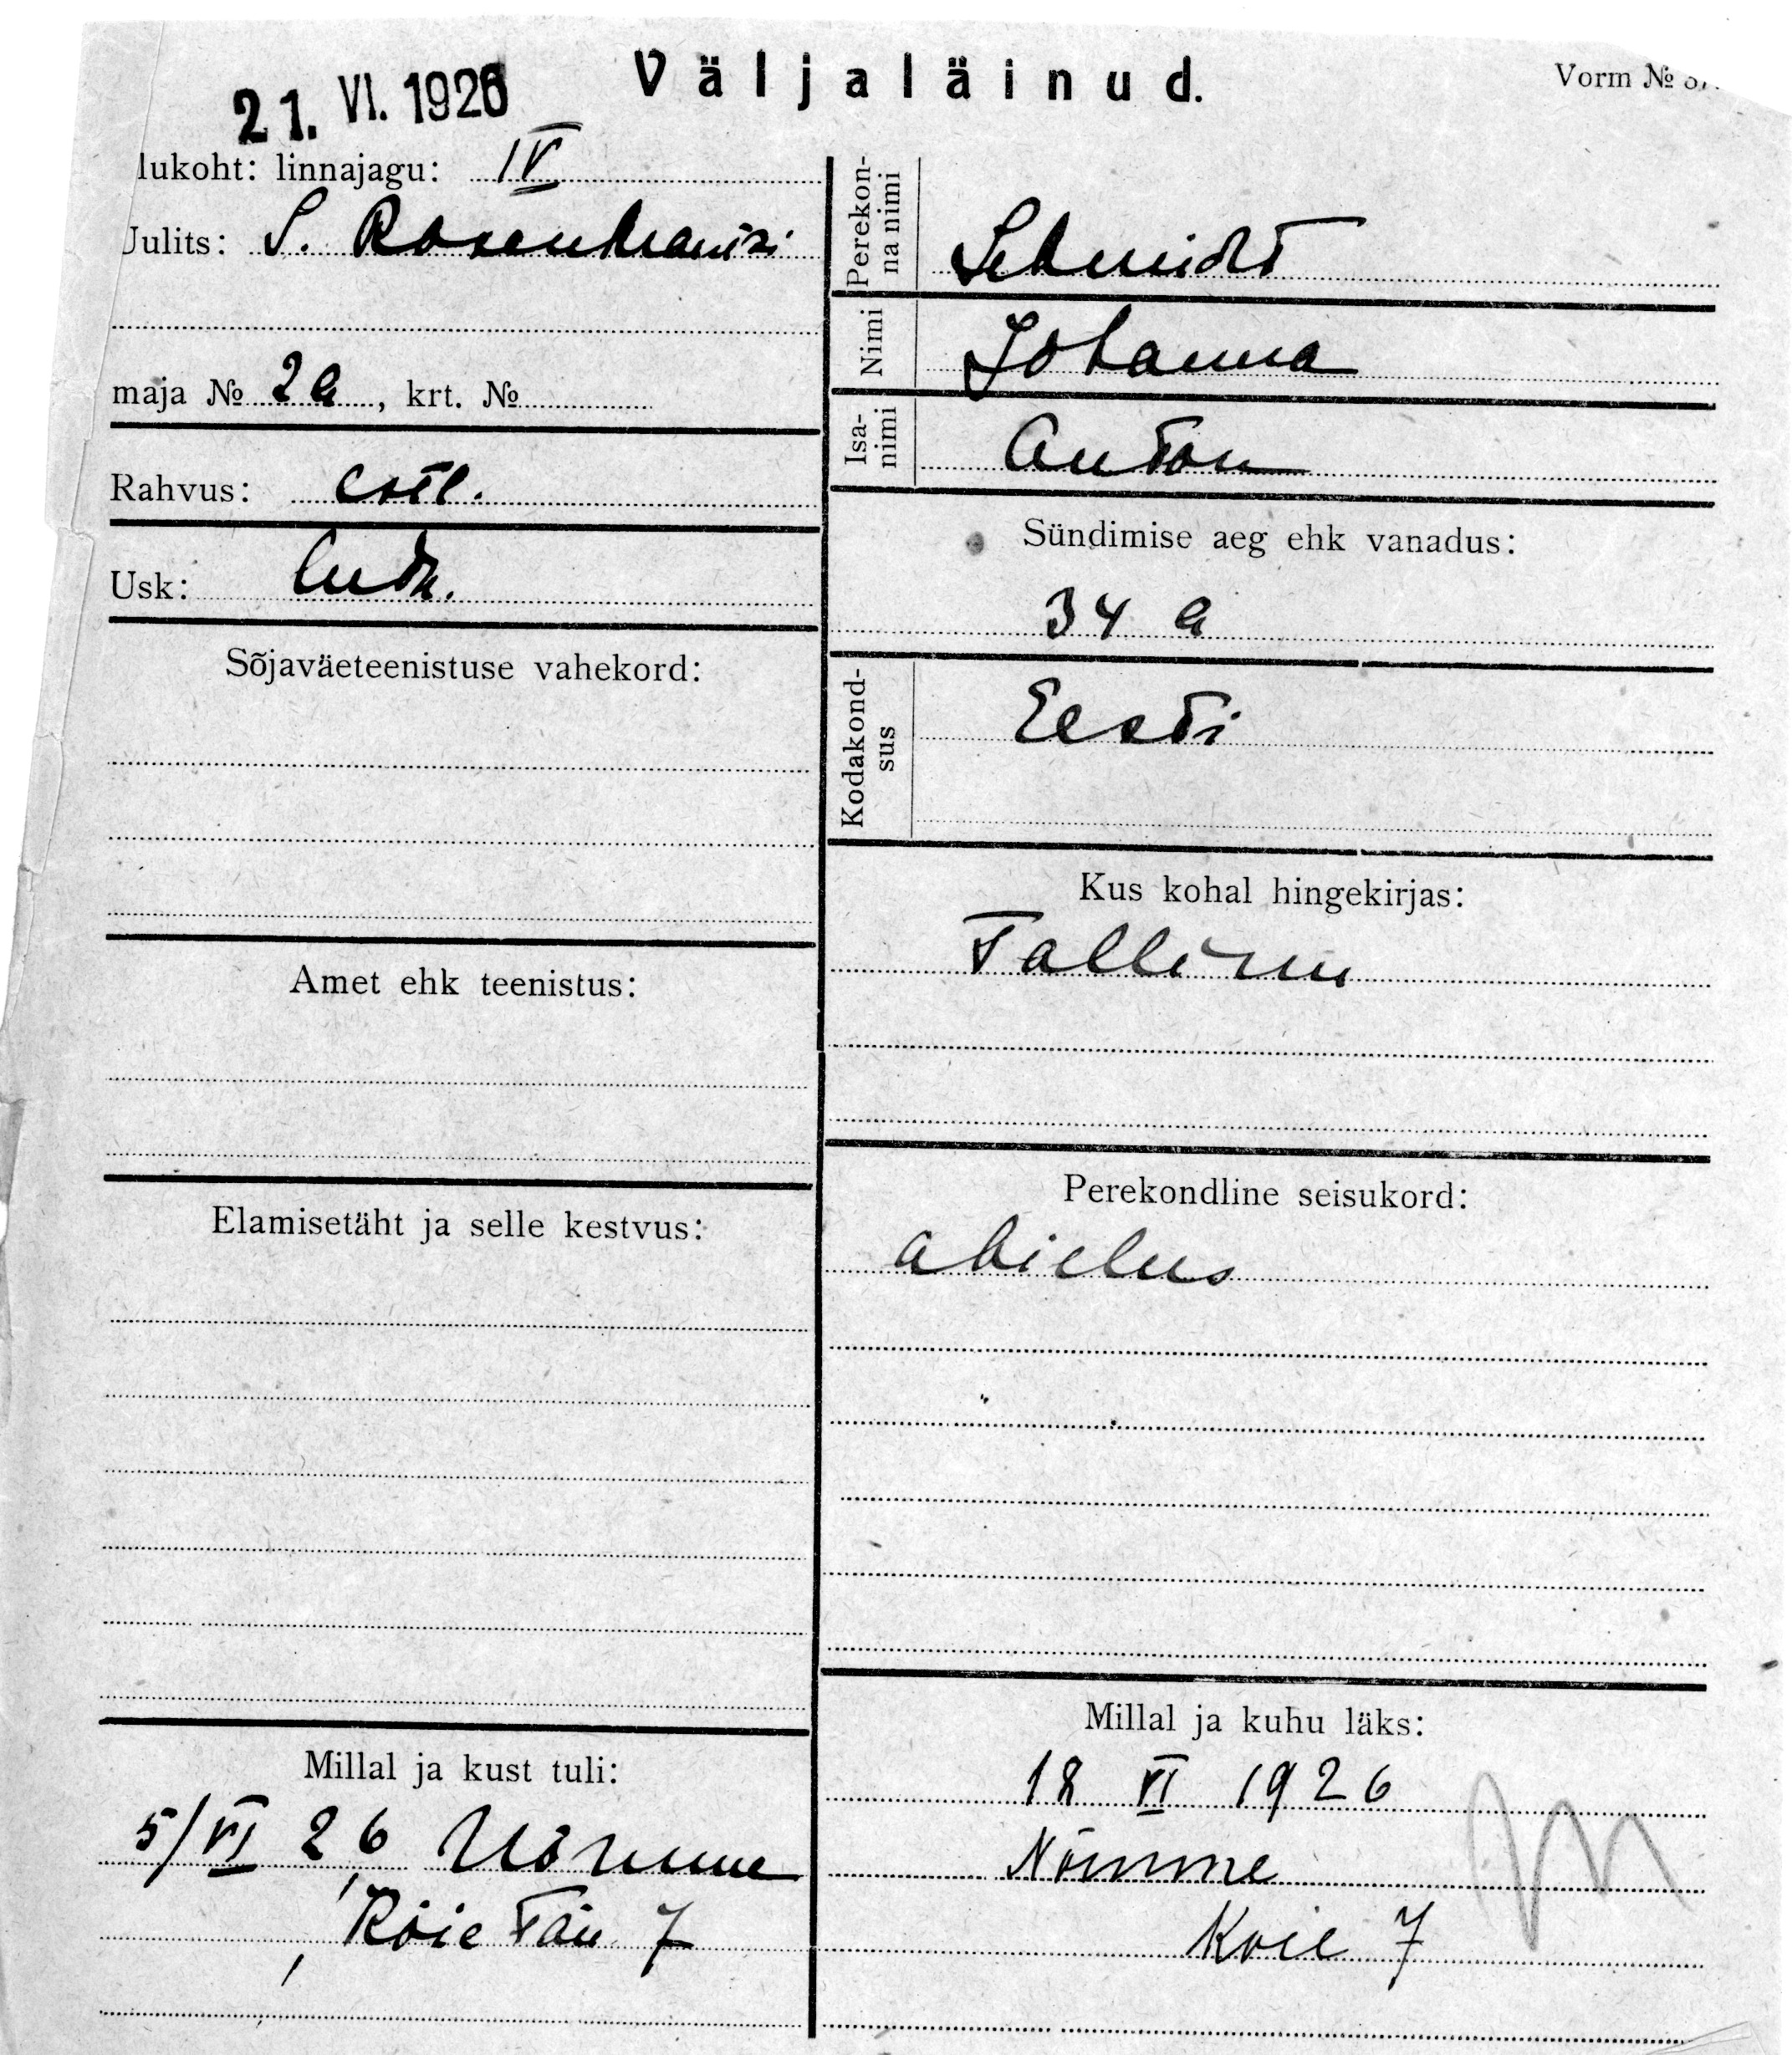 21. VI. 1926
Väljaläinud.
Vorm №
lukoht: linnajagu: IV
Julits: S. Rosenkranzi
maja № 2a, krt. №
Rahvus: eestl.
Usk: luth.
Sõjaväeteenistuse vahekord:
Amet ehk teenistus:
Elamisetäht ja selle kestvus:
Millal ja kust tuli:
5/VI 26 Nõmme
tän 7
Perekon-
na nimi
Schmidt
Nimi
Johanna
Isa-
nimi
Anton
Sündimise aeg ehk vanadus:
34 a
Kodakond-
sus
Eesti
Kus kohal hingekirjas:
Tallinn
Perekondline seisukord:
abielus
Millal ja kuhu läks:
18 VI 1926
Nõmme
7